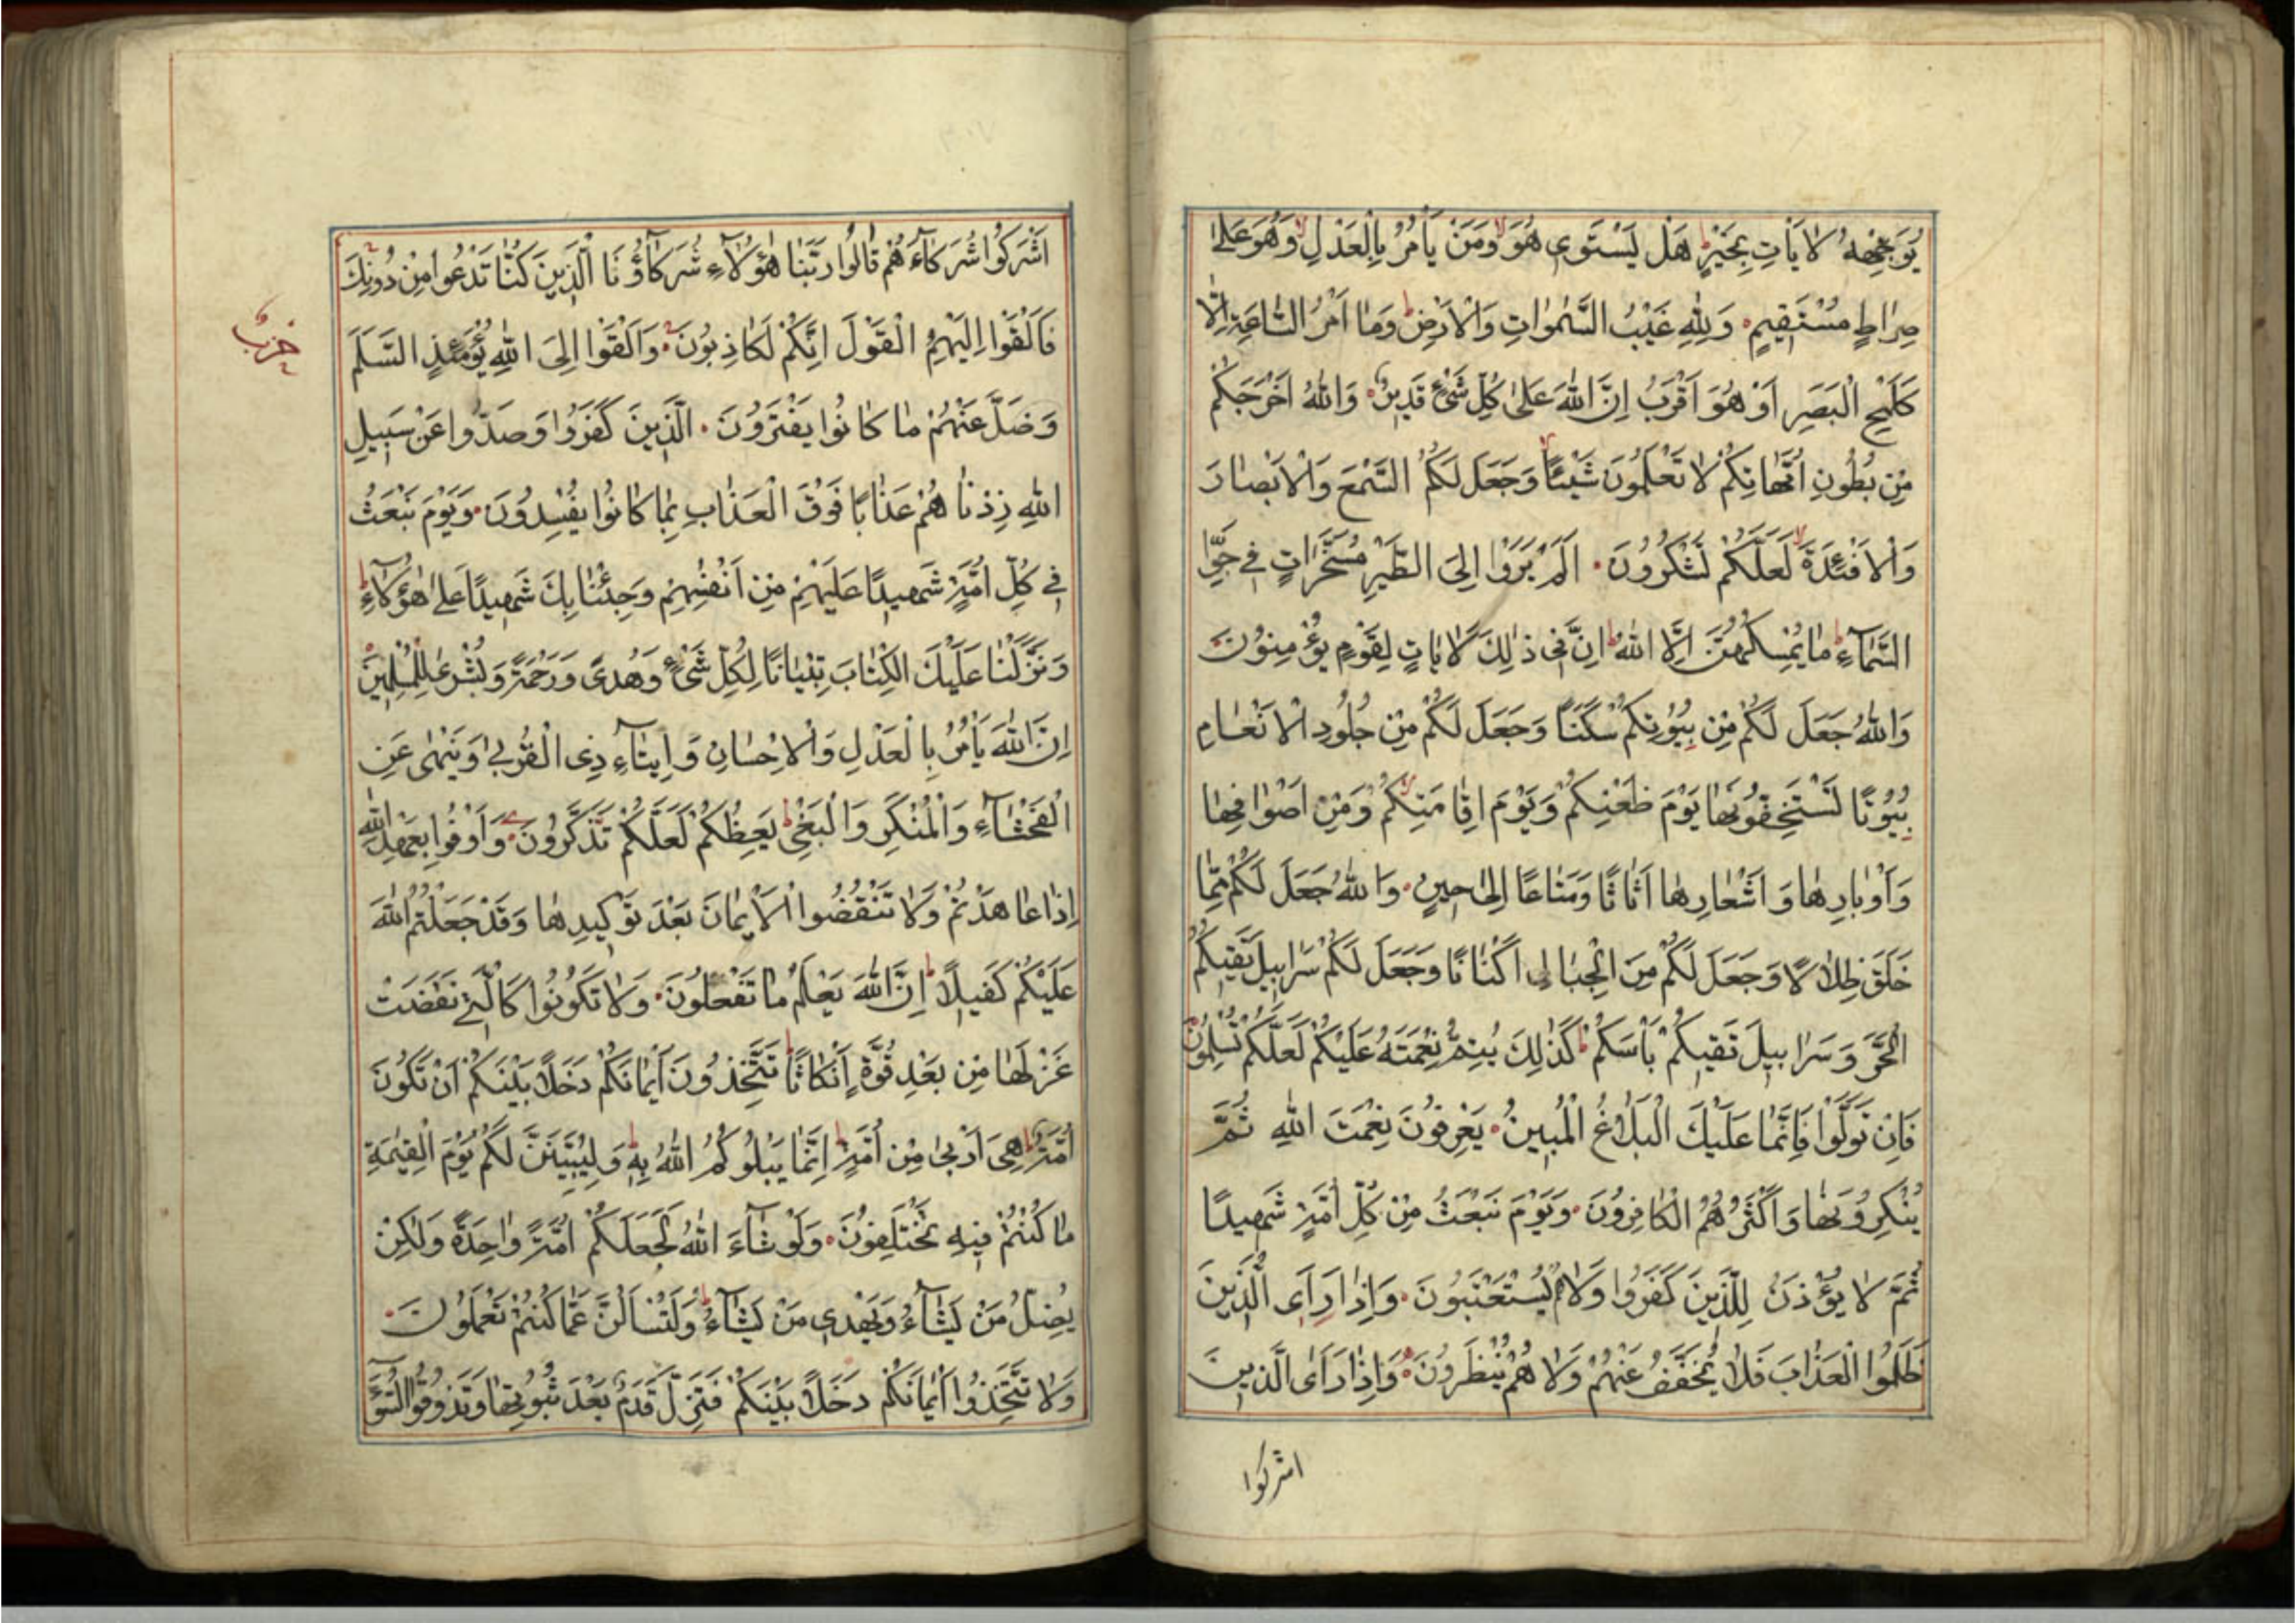 يُوَجِّهْهُ لَا يَأْتِ بِخَيْرٍ هَلْ يَسْتَوِي هُوَ وَمَنْ يَأْمُرُ بِالْعَدْلِ وَهُوَ عَلَىٰ
صِرَاطٍ مُسْتَقِيمٍ وَلِلَّهِ غَيْبُ السَّمٰوَاتِ وَالْأَرْضِ وَمَا أَمْرُ السَّاعَةِ إِلَّا
كَلَمْحِ الْبَصَرِ أَوْ هُوَ أَقْرَبُ إِنَّ اللّٰهَ عَلَىٰ كُلِّ شَيْءٍ قَدِيرٌ وَاللّٰهُ أَخْرَجَكُمْ
مِنْ بُطُونِ أُمَّهَاتِكُمْ لَا تَعْلَمُونَ شَيْئًا وَجَعَلَ لَكُمُ السَّمْعَ وَالْأَبْصَارَ
وَالْأَفْئِدَةَ لَعَلَّكُمْ تَشْكُرُونَ أَلَمْ يَرَوْا إِلَى الطَّيْرِ مُسَخَّرَاتٍ فِي جَوِّ
السَّمَاءِ مَا يُمْسِكُهُنَّ إِلَّا اللّٰهُ إِنَّ فِي ذٰلِكَ لَاٰيَاتٍ لِقَوْمٍ يُؤْمِنُونَ
وَاللّٰهُ جَعَلَ لَكُمْ مِنْ بُيُوتِكُمْ سَكَنًا وَجَعَلَ لَكُمْ مِنْ جُلُودِ الْأَنْعَامِ
بُيُوتًا تَسْتَخِفُّونَهَا يَوْمَ ظَعْنِكُمْ وَيَوْمَ إِقَامَتِكُمْ وَمِنْ أَصْوَافِهَا
وَأَوْبَارِهَا وَأَشْعَارِهَا أَثَاثًا وَمَتَاعًا إِلَىٰ حِينٍ وَاللّٰهُ جَعَلَ لَكُمْ مِمَّا
خَلَقَ ظِلَالًا وَجَعَلَ لَكُمْ مِنَ الْجِبَالِ أَكْنَانًا وَجَعَلَ لَكُمْ سَرَابِيلَ تَقِيكُمُ
الْحَرَّ وَسَرَابِيلَ تَقِيكُمْ بَأْسَكُمْ كَذٰلِكَ يُتِمُّ نِعْمَتَهُ عَلَيْكُمْ لَعَلَّكُمْ تُسْلِمُونَ
فَإِنْ تَوَلَّوْا فَإِنَّمَا عَلَيْكَ الْبَلَاغُ الْمُبِينُ يَعْرِفُونَ نِعْمَتَ اللّٰهِ ثُمَّ
يُنْكِرُونَهَا وَأَكْثَرُهُمُ الْكَافِرُونَ وَيَوْمَ نَبْعَثُ مِنْ كُلِّ أُمَّةٍ شَهِيدًا
ثُمَّ لَا يُؤْذَنُ لِلَّذِينَ كَفَرُوا وَلَا هُمْ يُسْتَعْتَبُونَ وَإِذَا رَأَى الَّذِينَ
ظَلَمُوا الْعَذَابَ فَلَا يُخَفَّفُ عَنْهُمْ وَلَا هُمْ يُنْظَرُونَ وَإِذَا رَأَى الَّذِينَ
اشركوا
أَشْرَكُوا شُرَكَاءَهُمْ قَالُوا رَبَّنَا هٰؤُلَاءِ شُرَكَاؤُنَا الَّذِينَ كُنَّا نَدْعُوا مِنْ دُونِكَ
فَأَلْقَوْا إِلَيْهِمُ الْقَوْلَ إِنَّكُمْ لَكَاذِبُونَ وَأَلْقَوْا إِلَى اللّٰهِ يَوْمَئِذٍ السَّلَمَ
حزب
وَضَلَّ عَنْهُمْ مَا كَانُوا يَفْتَرُونَ الَّذِينَ كَفَرُوا وَصَدُّوا عَنْ سَبِيلِ
اللّٰهِ زِدْنَاهُمْ عَذَابًا فَوْقَ الْعَذَابِ بِمَا كَانُوا يُفْسِدُونَ وَيَوْمَ نَبْعَثُ
فِي كُلِّ أُمَّةٍ شَهِيدًا عَلَيْهِمْ مِنْ أَنْفُسِهِمْ وَجِئْنَا بِكَ شَهِيدًا عَلَىٰ هٰؤُلَاءِ
وَنَزَّلْنَا عَلَيْكَ الْكِتَابَ تِبْيَانًا لِكُلِّ شَيْءٍ وَهُدًى وَرَحْمَةً وَبُشْرَىٰ لِلْمُسْلِمِينَ
إِنَّ اللّٰهَ يَأْمُرُ بِالْعَدْلِ وَالْإِحْسَانِ وَإِيتَاءِ ذِي الْقُرْبَىٰ وَيَنْهَىٰ عَنِ
الْفَحْشَاءِ وَالْمُنْكَرِ وَالْبَغْيِ يَعِظُكُمْ لَعَلَّكُمْ تَذَكَّرُونَ وَأَوْفُوا بِعَهْدِ اللّٰهِ
إِذَا عَاهَدْتُمْ وَلَا تَنْقُضُوا الْأَيْمَانَ بَعْدَ تَوْكِيدِهَا وَقَدْ جَعَلْتُمُ اللّٰهَ
عَلَيْكُمْ كَفِيلًا إِنَّ اللّٰهَ يَعْلَمُ مَا تَفْعَلُونَ وَلَا تَكُونُوا كَالَّتِي نَقَضَتْ
غَزْلَهَا مِنْ بَعْدِ قُوَّةٍ أَنْكَاثًا تَتَّخِذُونَ أَيْمَانَكُمْ دَخَلًا بَيْنَكُمْ أَنْ تَكُونَ
أُمَّةٌ هِيَ أَرْبَىٰ مِنْ أُمَّةٍ إِنَّمَا يَبْلُوكُمُ اللّٰهُ بِهِ وَلَيُبَيِّنَنَّ لَكُمْ يَوْمَ الْقِيٰمَةِ
مَا كُنْتُمْ فِيهِ تَخْتَلِفُونَ وَلَوْ شَاءَ اللّٰهُ لَجَعَلَكُمْ أُمَّةً وَاحِدَةً وَلٰكِنْ
يُضِلُّ مَنْ يَشَاءُ وَيَهْدِي مَنْ يَشَاءُ وَلَتُسْأَلُنَّ عَمَّا كُنْتُمْ تَعْمَلُونَ
وَلَا تَتَّخِذُوا أَيْمَانَكُمْ دَخَلًا بَيْنَكُمْ فَتَزِلَّ قَدَمٌ بَعْدَ ثُبُوتِهَا وَتَذُوقُوا السُّوءَ